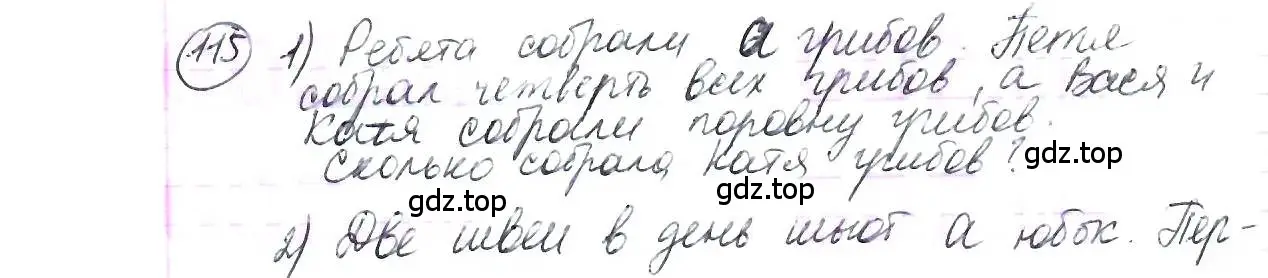 115 1) Ребята собрали а грибов. Петя
собрал четверть всех грибов, а Вася и
Катя собрали поровну грибов.
Сколько собрала Катя грибов?
gdz.top
gdz.top
gdz.top
2) Две швеи в день шьют а юбок. Пер-